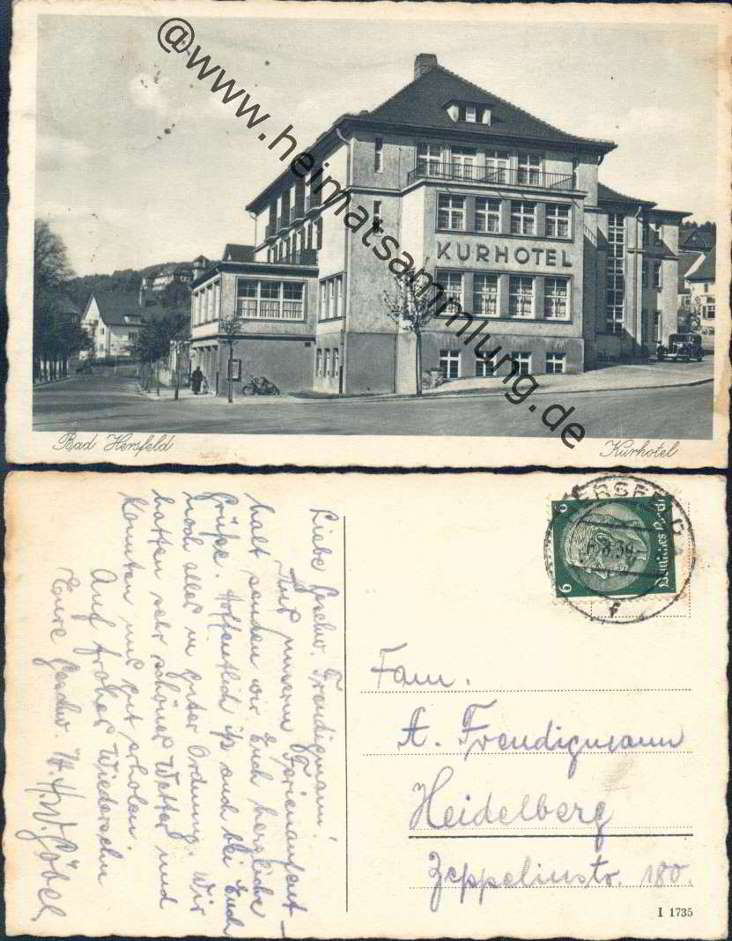 @www.heimatsammlung.de
KURHOTEL
Bad Hersfeld
Kurhotel
Liebe Geschw. Freudigmann!
Aus unserm Ferienaufent-
halt senden wir Euch herzliche
Grüße. Hoffentlich ist auch bei Euch
noch alles in guter Ordnung. Wir
hatten sehr schönes Wetter und
konnten uns gut erholen.
Auf frohes Wiedersehn
Eure Geschw. Göbel
HERSFELD
6
6
Deutsches Reich
Fam.
A. Freudigmann
Heidelberg
Zeppelinstr. 180.
I 1735